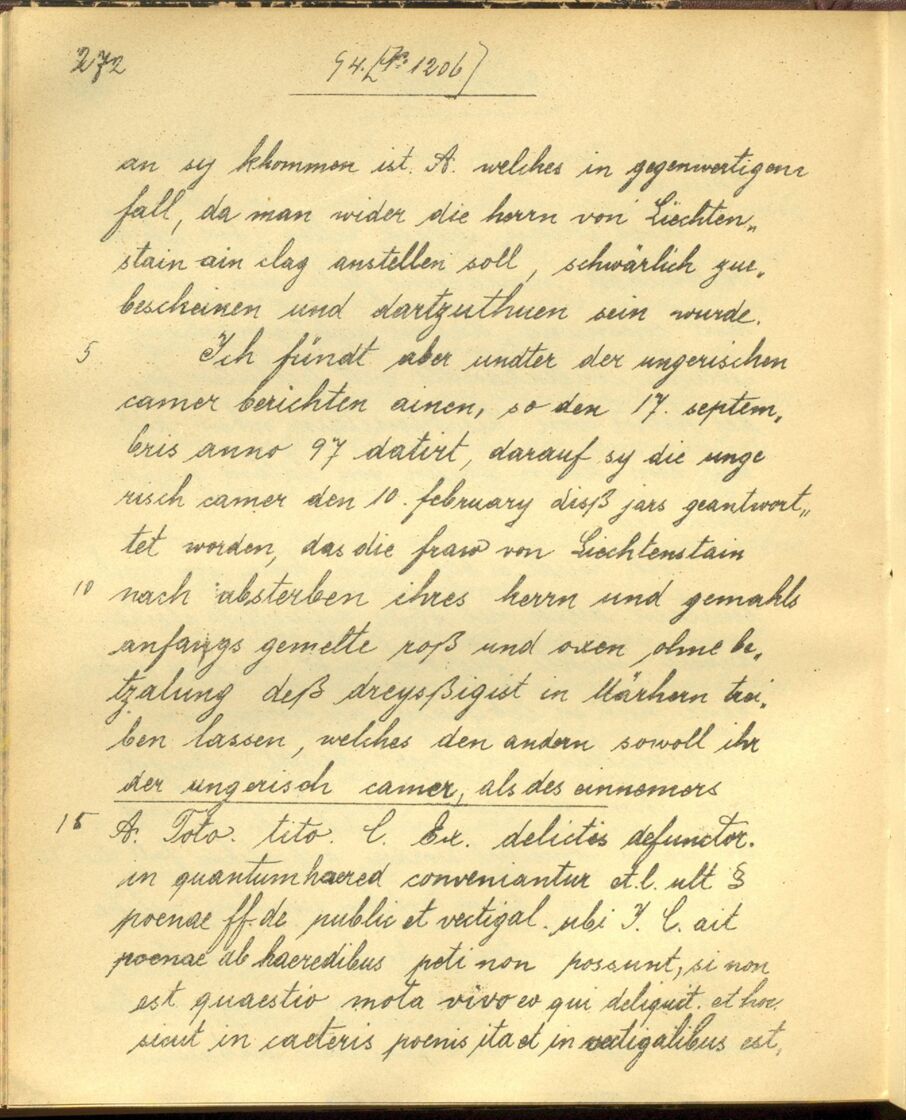 272 94. [Nr. 1206]
an sy khommen ist. A. welches in gegenwertigem
fall, da man wider die herrn von Liechten„
stain ain clag anstellen soll, schwärlich zue„
bescheinen und dartzuthuen sein wurde.
5 Ich fündt aber undter der ungerischen
camer berichten ainen, so den 17. septem„
bris anno 97 datirt, darauf sy die unge
risch camer den 10. february disß jars geantwort„
tet worden, das die fraw von Liechtenstain
10 nach absterben ihres herrn und gemahls
anfangs gemelte roß und oxen ohne be„
tzalung deß dreysßigist in Märhern trei„
ben lassen, welches den andern sowoll ihr
der ungerisch camer, als des einnemers
15 A. Toto. tito. C. Ex. delictis defunctor.
in quantum haered conveniantur et. l. ult §
poenae ff. de public et vectigal. ubi I. C. ait
poenae ab haeredibus peti non possunt, si non
est quaestio mota vivo eo qui deliquit. et hoc
sicut in caeteris poenis ita et in vectigalibus est,